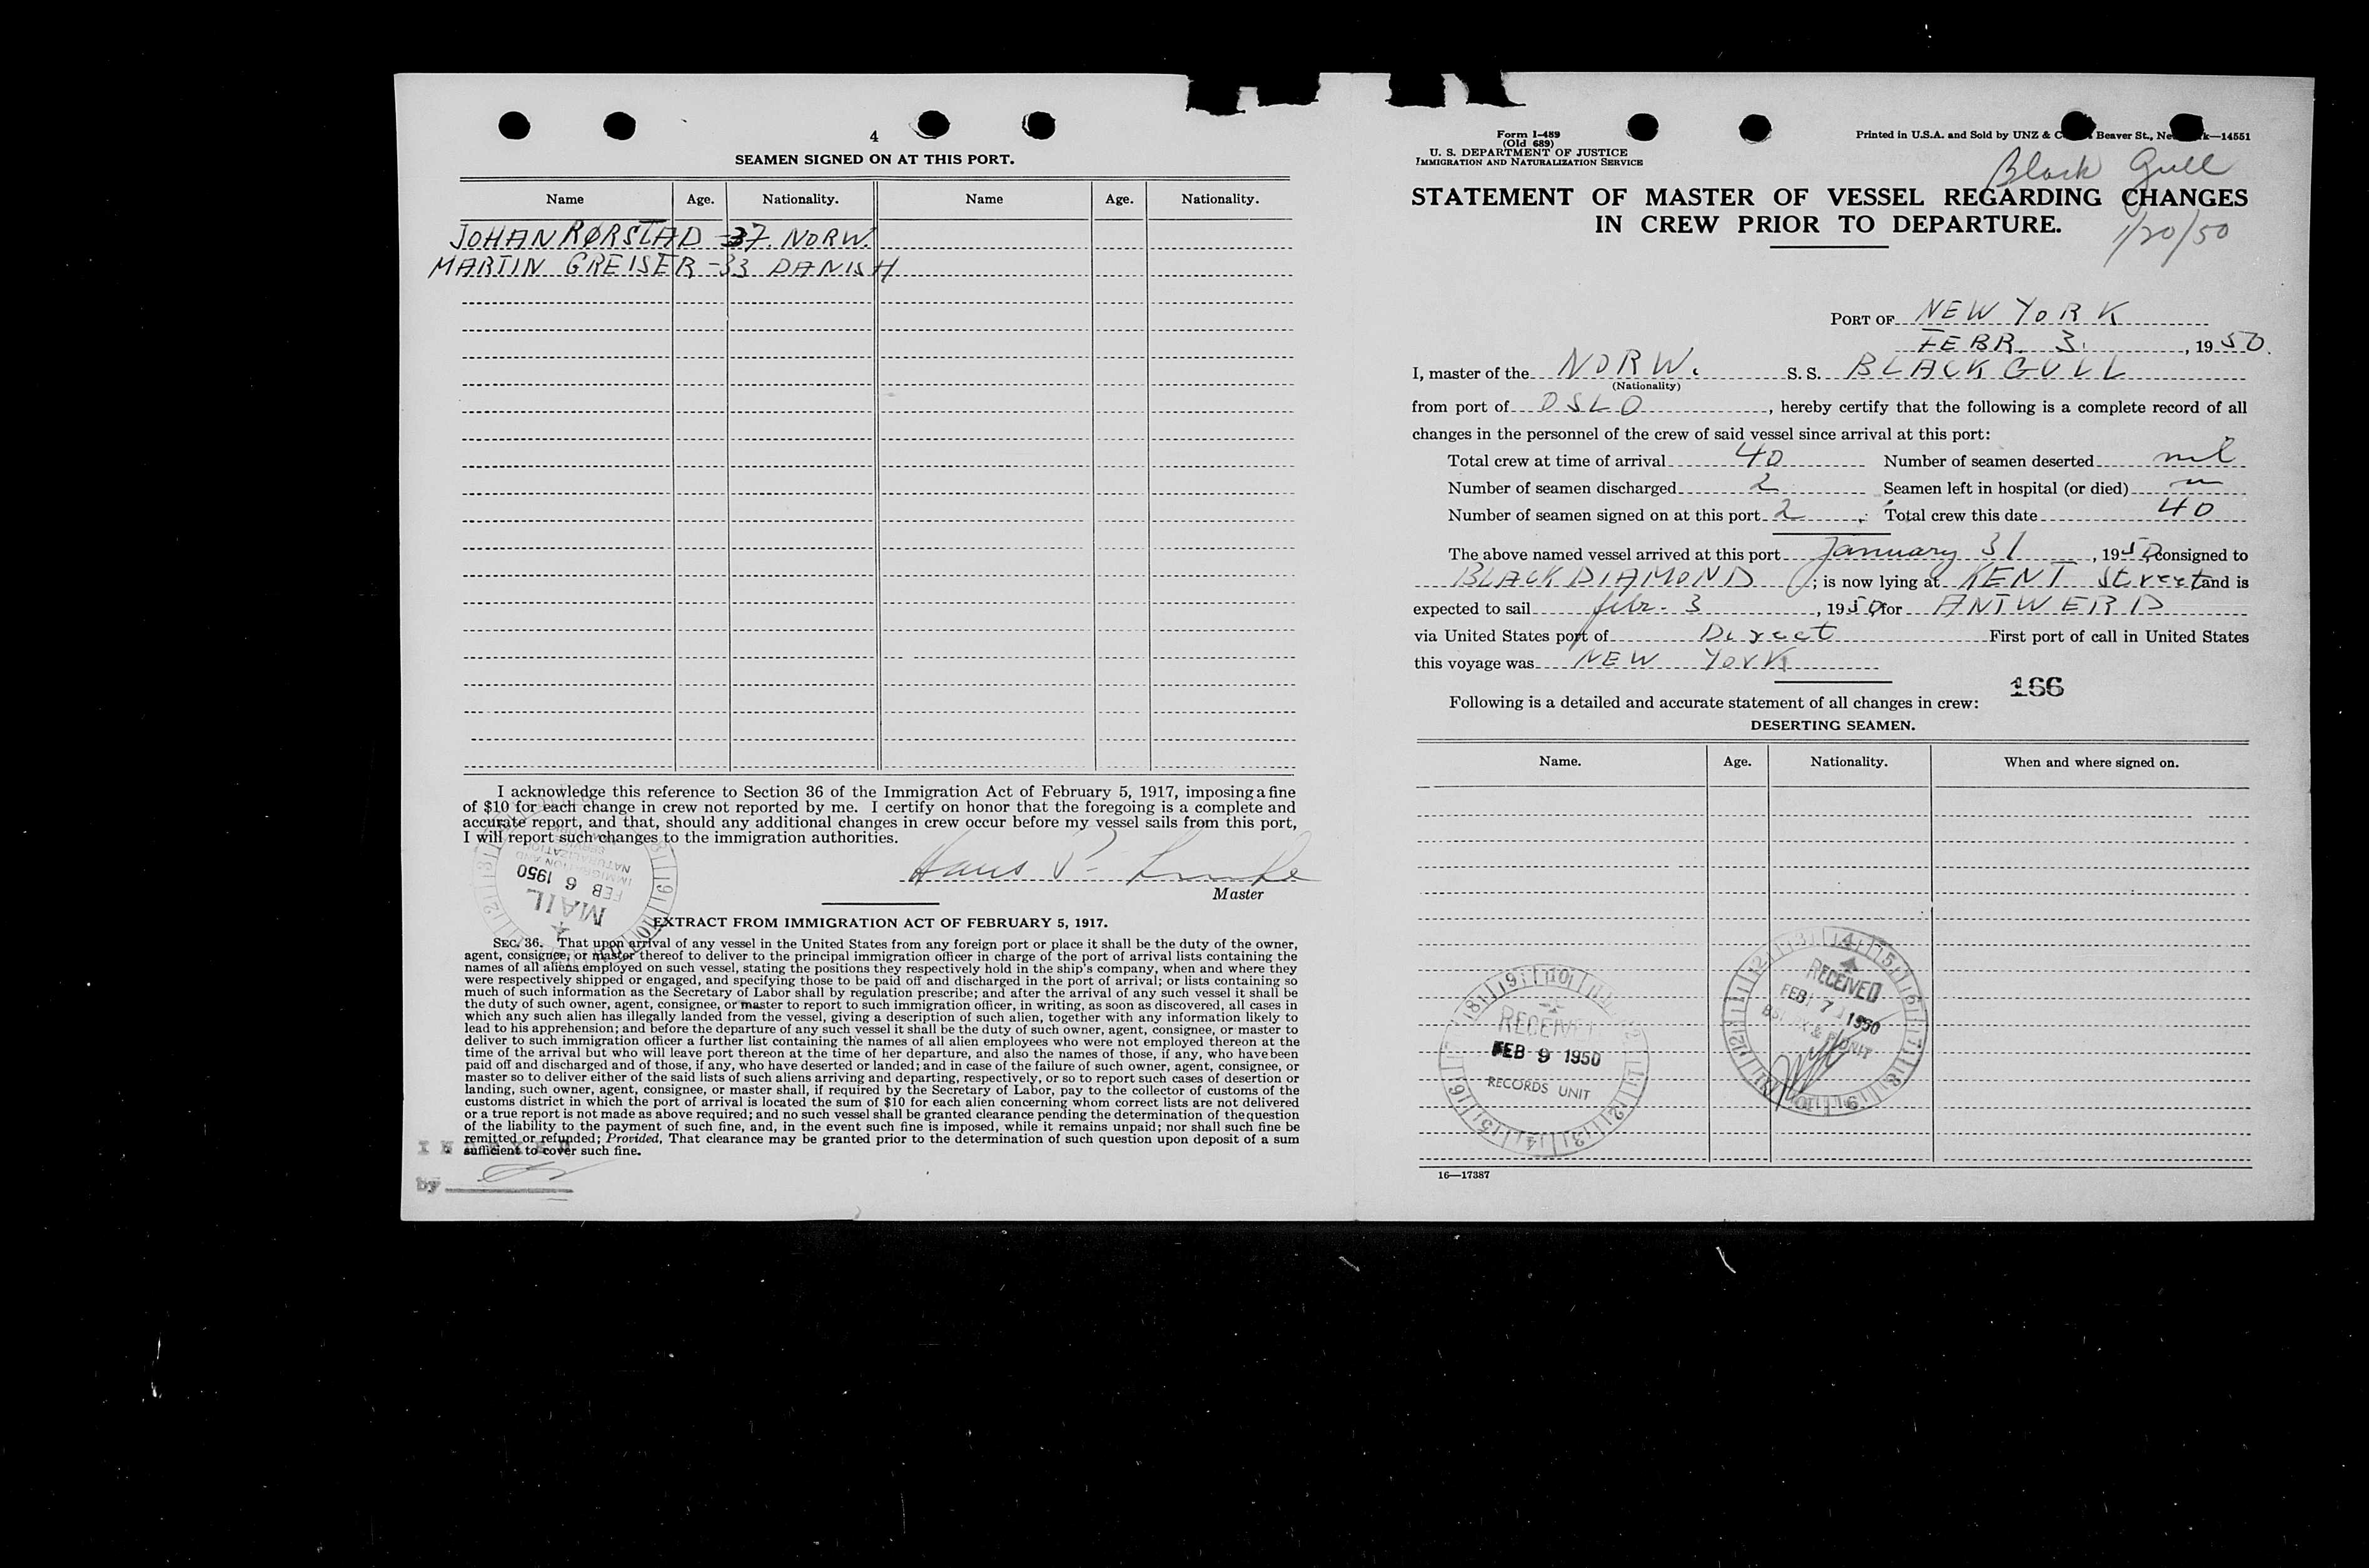 4
SEAMEN SIGNED ON AT THIS PORT.
Name Age. Nationality. Name Age. Nationality.
JOHAN RØRSTAD -37 NORW.
MARTIN GREISER -33 DANISH
I acknowledge this reference to Section 36 of the Immigration Act of February 5, 1917, imposing a fine
of $10 for each change in crew not reported by me. I certify on honor that the foregoing is a complete and
accurate report, and that, should any additional changes in crew occur before my vessel sails from this port,
I will report such changes to the immigration authorities.
Hans P.
Master
MAIL
FEB 6 1950
IMMIGRATION AND
NATURALIZATION
SERVICE
EXTRACT FROM IMMIGRATION ACT OF FEBRUARY 5, 1917.
SEC. 36. That upon arrival of any vessel in the United States from any foreign port or place it shall be the duty of the owner,
agent, consignee, or master thereof to deliver to the principal immigration officer in charge of the port of arrival lists containing the
names of all aliens employed on such vessel, stating the positions they respectively hold in the ship's company, when and where they
were respectively shipped or engaged, and specifying those to be paid off and discharged in the port of arrival; or lists containing so
much of such information as the Secretary of Labor shall by regulation prescribe; and after the arrival of any such vessel it shall be
the duty of such owner, agent, consignee, or master to report to such immigration officer, in writing, as soon as discovered, all cases in
which any such alien has illegally landed from the vessel, giving a description of such alien, together with any information likely to
lead to his apprehension; and before the departure of any such vessel it shall be the duty of such owner, agent, consignee, or master to
deliver to such immigration officer a further list containing the names of all alien employees who were not employed thereon at the
time of the arrival but who will leave port thereon at the time of her departure, and also the names of those, if any, who have been
paid off and discharged and of those, if any, who have deserted or landed; and in case of the failure of such owner, agent, consignee, or
master so to deliver either of the said lists of such aliens arriving and departing, respectively, or so to report such cases of desertion or
landing, such owner, agent, consignee, or master shall, if required by the Secretary of Labor, pay to the collector of customs of the
customs district in which the port of arrival is located the sum of $10 for each alien concerning whom correct lists are not delivered
or a true report is not made as above required; and no such vessel shall be granted clearance pending the determination of the question
of the liability to the payment of such fine, and, in the event such fine is imposed, while it remains unpaid; nor shall such fine be
remitted or refunded; Provided, That clearance may be granted prior to the determination of such question upon deposit of a sum
sufficient to cover such fine.
by
Form I-489
(Old 689)
U. S. DEPARTMENT OF JUSTICE
IMMIGRATION AND NATURALIZATION SERVICE
Printed in U.S.A. and Sold by UNZ & C Beaver St., Ne k—14551
Black Gull
STATEMENT OF MASTER OF VESSEL REGARDING CHANGES
IN CREW PRIOR TO DEPARTURE.
1/20/50
PORT OF NEW YORK
FEBR. 3. , 1950.
I, master of the NORW. S. S. BLACK GULL
(Nationality)
from port of OSLO , hereby certify that the following is a complete record of all
changes in the personnel of the crew of said vessel since arrival at this port:
Total crew at time of arrival 40 Number of seamen deserted nil
Number of seamen discharged 2 Seamen left in hospital (or died) "
Number of seamen signed on at this port 2 Total crew this date 40
The above named vessel arrived at this port January 31 , 1950, consigned to
BLACK DIAMOND ; is now lying at KENT Street and is
expected to sail febr. 3 , 1950 for ANTWERP
via United States port of Direct First port of call in United States
this voyage was NEW YORK
166
Following is a detailed and accurate statement of all changes in crew:
DESERTING SEAMEN.
Name. Age. Nationality. When and where signed on.
RECEIVED
FEB 9 1950
RECORDS UNIT
RECEIVED
FEB 7 1950
UNIT
16—17387